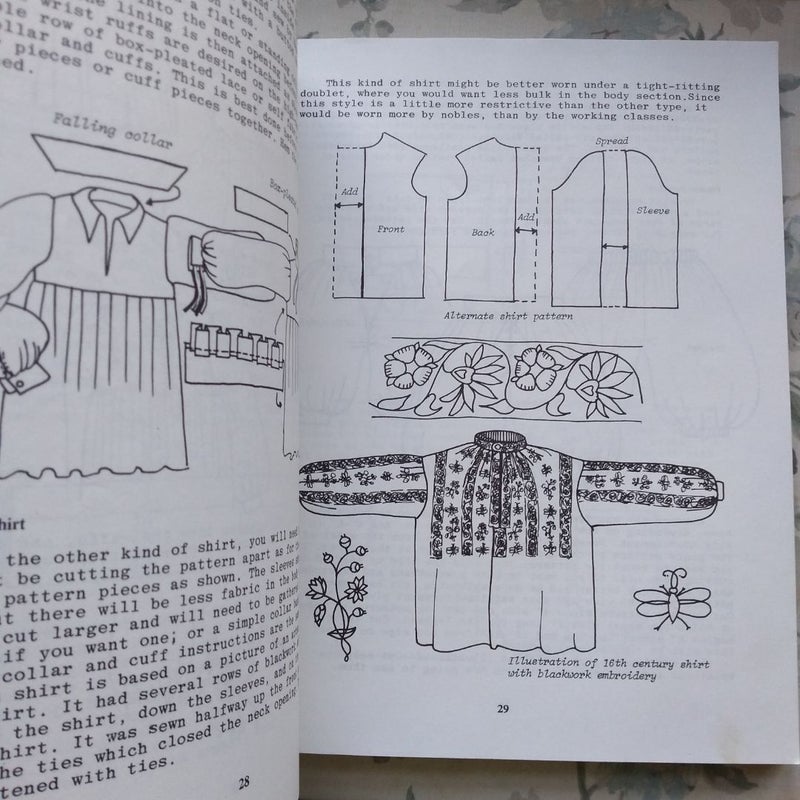 a flat or standing
into the neck opening
on ties.
lining is then attached
wrist ruffs are desired on the
row of box-pleated lace or self
collar and cuffs. This is best done
pieces or cuff pieces together.
Falling collar
hirt
the other kind of shirt, you will need
be cutting the pattern apart as for
pattern pieces as shown. The sleeves
there will be less fabric in the
cut larger and will need to be gathered
if you want one; or a simple collar
collar and cuff instructions are the
shirt is based on a picture of an
irt. It had several rows of blackwork
the shirt, down the sleeves, and
hirt. It was sewn halfway up the front
he ties which closed the neck opening
tened with ties.
28
This kind of shirt might be better worn under a tight-fitting
doublet, where you would want less bulk in the body section.Since
this style is a little more restrictive than the other type, it
would be worn more by nobles, than by the working classes.
Spread
Add
Front
Back
Add
Sleeve
Alternate shirt pattern
Illustration of 16th century shirt
with blackwork embroidery
29